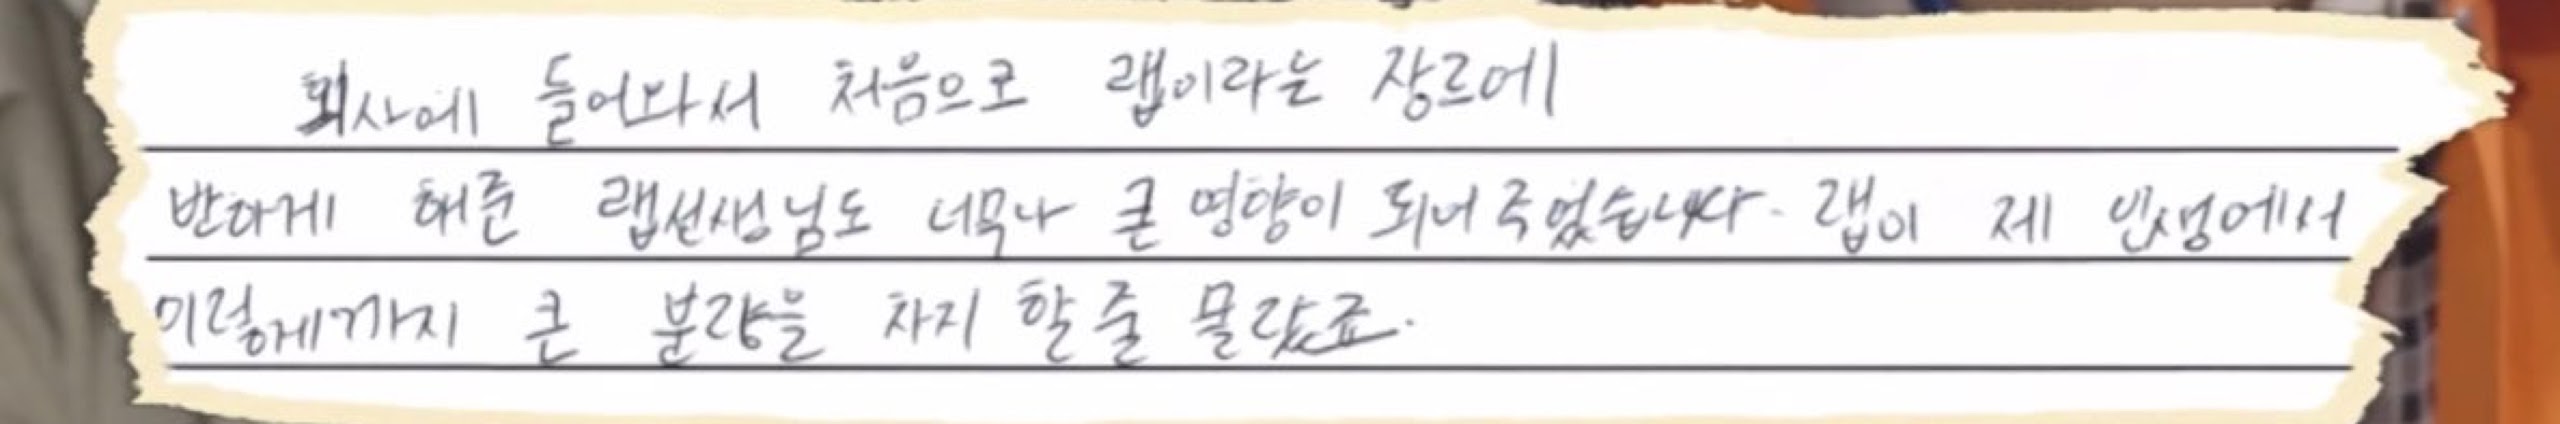 회사에 들어와서 처음으로 랩이라는 장르에
반하게 해준 랩선생님도 너무나 큰 영향이 되어주었습니다. 랩이 제 인생에서
이렇게까지 큰 분량을 차지 할 줄 몰랐죠.